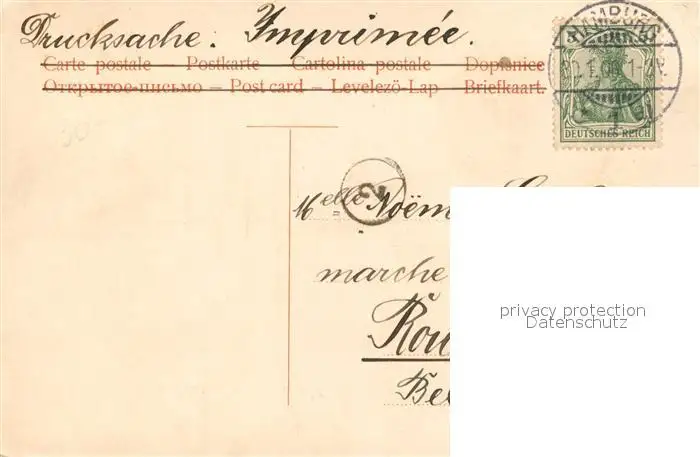 Drucksache. Imprimée.
Carte postale — Postkarte — Cartolina postale — Dopisnice
Открытое-письмо — Post card — Levelezö-Lap — Briefkaart.
HAMBURG
1
DEUTSCHES REICH
2
Melle Noëm
marche
Rou
Bel
privacy protection
Datenschutz